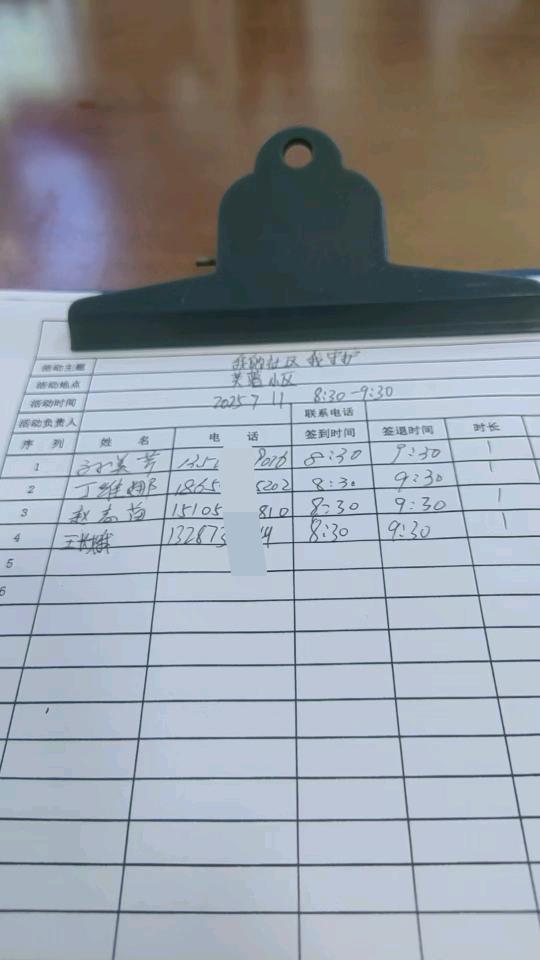 活动主题 我的社区 我守护
活动地点 芙蓉小区
活动时间 2025 7 11 8:30-9:30
活动负责人 联系电话
序 列 姓 名 电 话 签到时间 签退时间 时长
1 8:30 9:30 1
2 丁维娜 5202 8:30 9:30 1
3 赵志苗 15105 810 8:30 9:30 1
4 13287 8:30 9:30 1
5
6